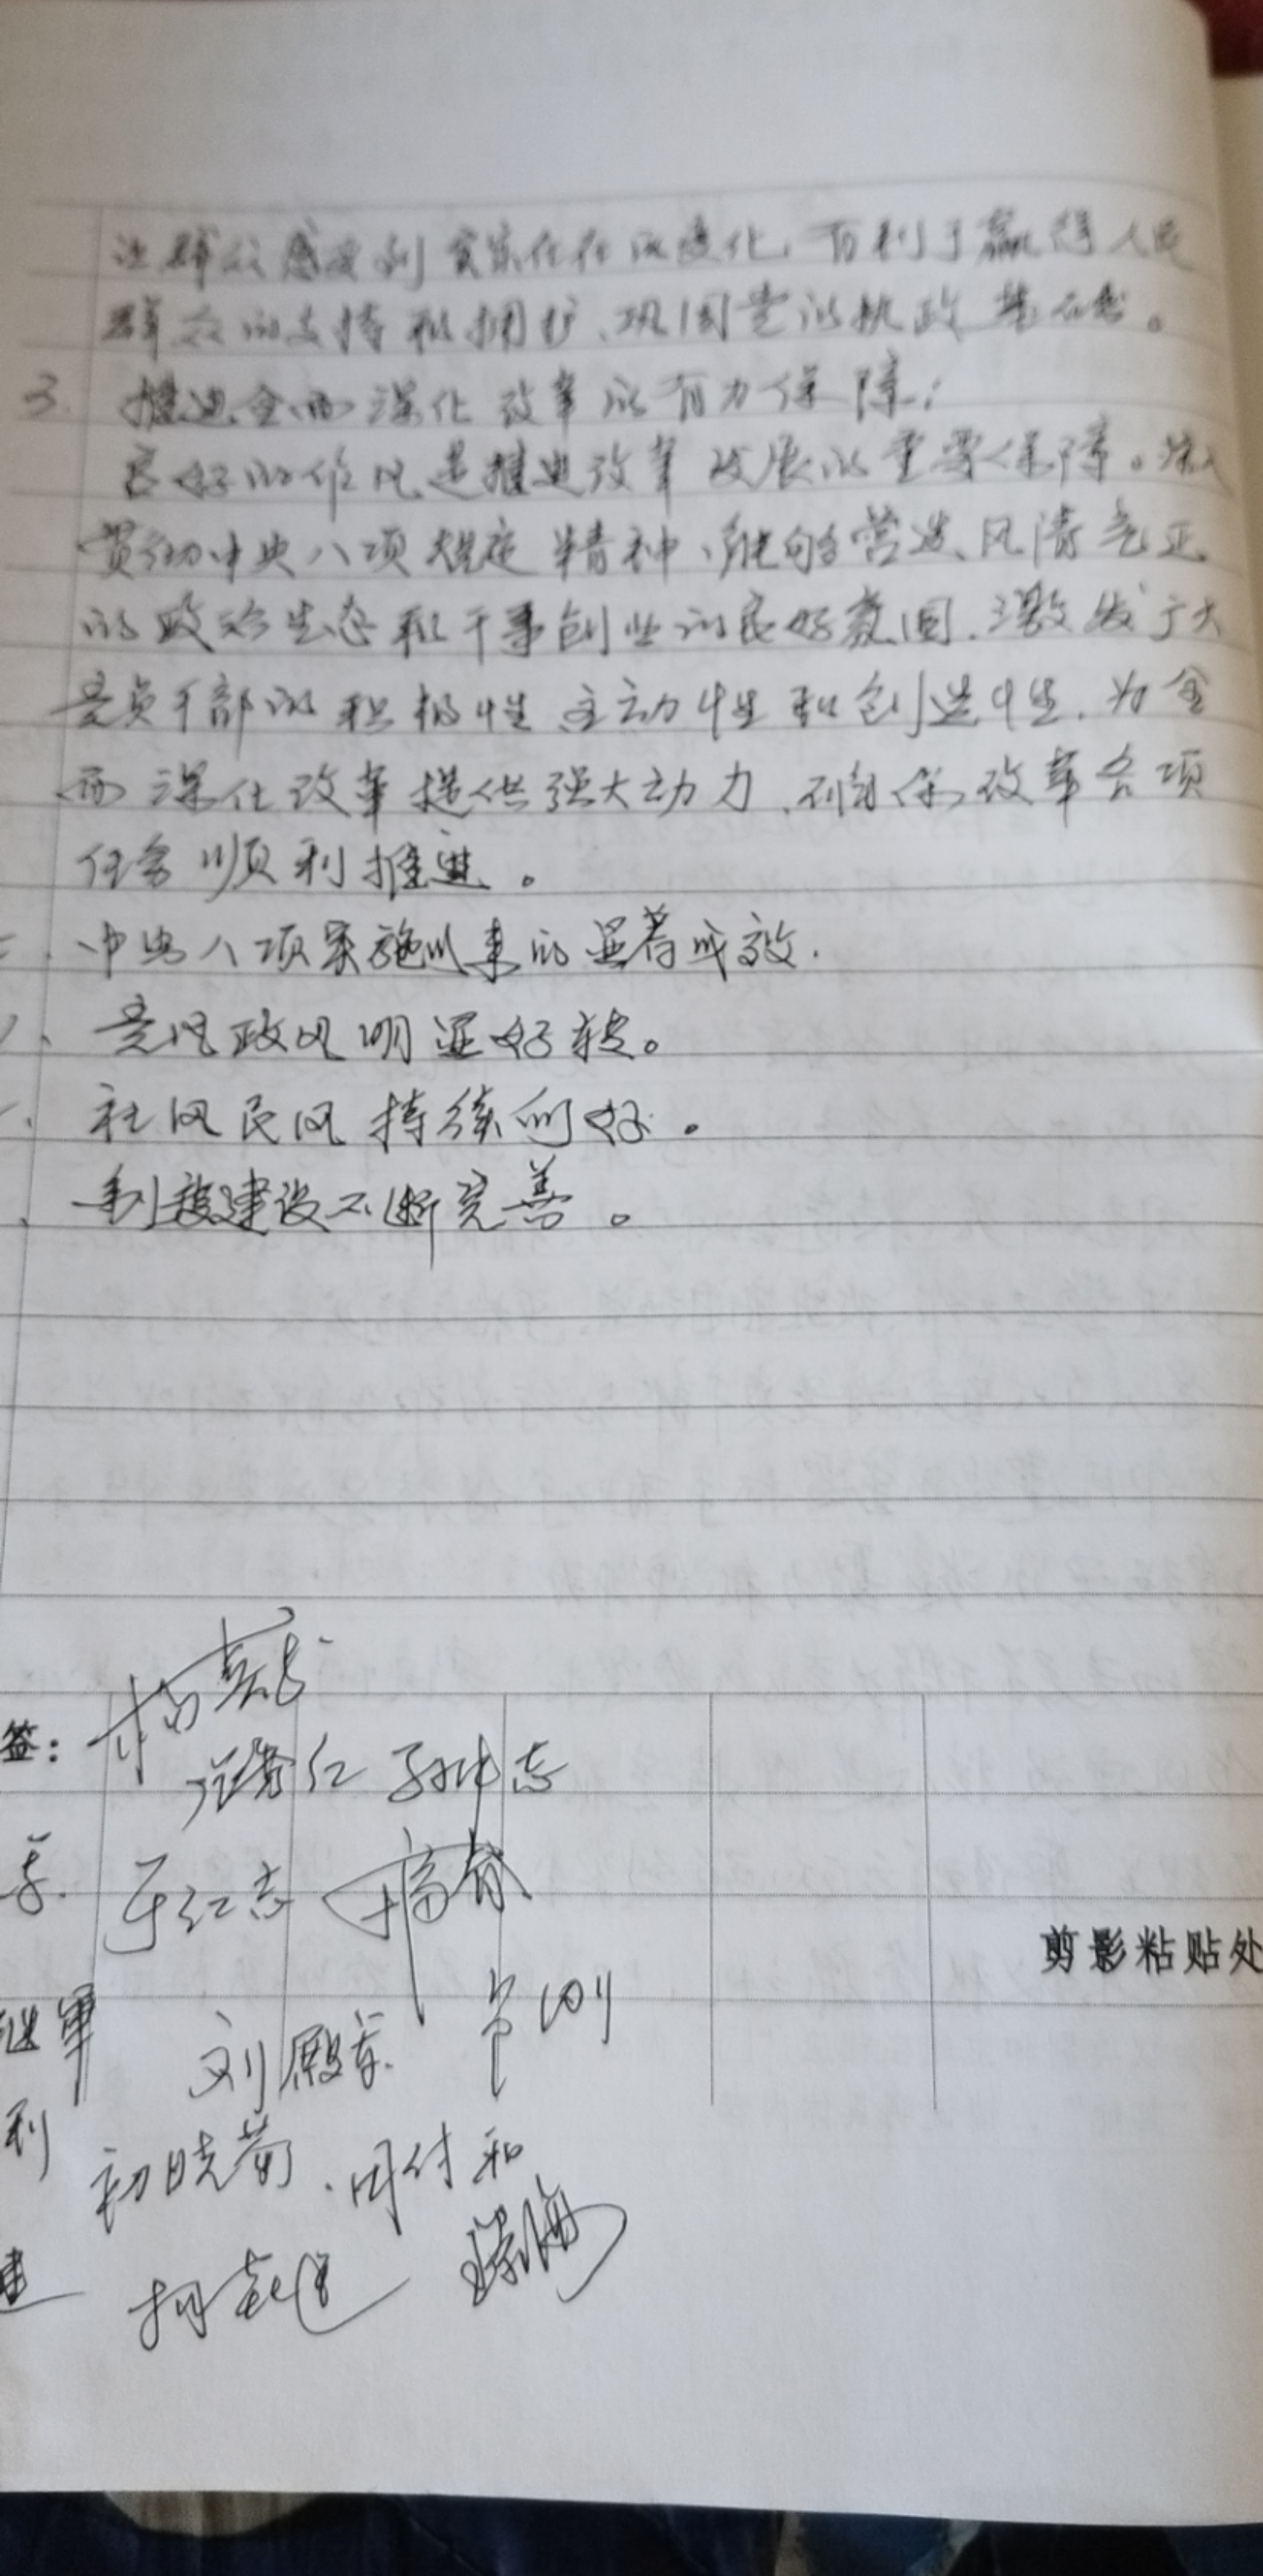 让群众感受到实实在在的变化，有利于赢得人民
群众的支持和拥护、巩固党的执政基础。
3. 推进全面深化改革的有力保障：
良好的作风是推进改革发展的重要保障。深入
贯彻中央八项规定精神，能够营造风清气正
的政治生态和干事创业的良好氛围，激发广大
党员干部的积极性主动性和创造性，为全
面深化改革提供强大动力，确保改革各项
任务顺利推进。
中央八项实施以来的显著成效.
党风政风明显好转。
社风民风持续向好。
制度建设不断完善。
签:
红 孙 志
于红志
剪影粘贴处
军
刘殿
利
初晓 付和